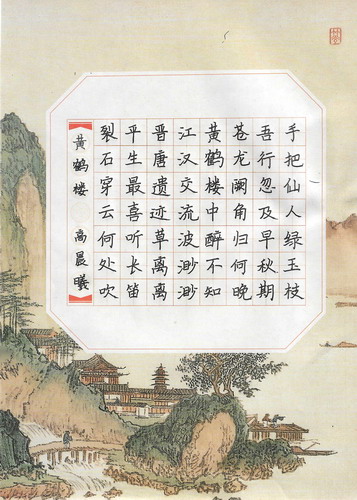 手把仙人绿玉枝
吾行忽及早秋期
苍龙阙角归何晚
黄鹤楼中醉不知
江汉交流波渺渺
晋唐遗迹草离离
平生最喜听长笛
裂石穿云何处吹
黄鹤楼 高晨曦